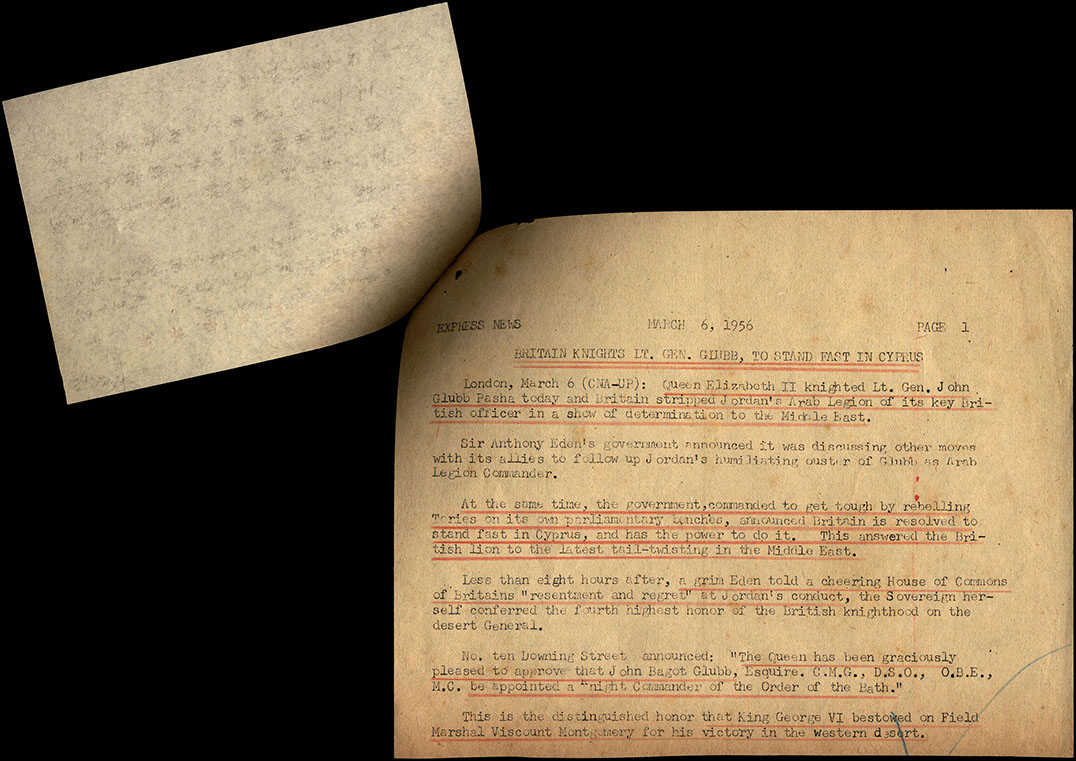 EXPRESS NEWS MARCH 6, 1956 PAGE 1
BRITAIN KNIGHTS LT. GEN. GLUBB, TO STAND FAST IN CYPRUS
London, March 6 (CNA-UP): Queen Elizabeth II knighted Lt. Gen. John
Glubb Pasha today and Britain stripped Jordan's Arab Legion of its key Bri-
tish officer in a show of determination to the Middle East.
Sir Anthony Eden's government announced it was discussing other moves
with its allies to follow up Jordan's humiliating ouster of Glubb as Arab
Legion Commander.
At the same time, the government,commanded to get tough by rebelling
Tories on its own parliamentary benches, announced Britain is resolved to
stand fast in Cyprus, and has the power to do it. This answered the Bri-
tish lion to the latest tail-twisting in the Middle East.
Less than eight hours after, a grim Eden told a cheering House of Commons
of Britains "resentment and regret" at Jordan's conduct, the Sovereign her-
self conferred the fourth highest honor of the British knighthood on the
desert General.
No. ten Downing Street announced: "The Queen has been graciously
pleased to approve that John Bagot Glubb, Esquire. C.M.G., D.S.O., O.B.E.,
M.C. be appointed a "night Commander of the Order of the Bath."
This is the distinguished honor that King George VI bestowed on Field
Marshal Viscount Montgomery for his victory in the western desert.